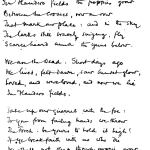 In Flanders fields the poppies grow
Between the crosses, row on row
That mark our place: and in the sky
The larks still bravely singing, fly
Scarce heard amidst the guns below.
We are the Dead. Short days ago
We lived, felt dawn, saw sunset glow,
Loved, and were loved, and now we lie
In Flanders fields.
Take up our quarrel with the foe:
To you from failing hands we throw
The torch: be yours to hold it high!
If ye break faith with us who die
We shall not sleep, though poppies grow